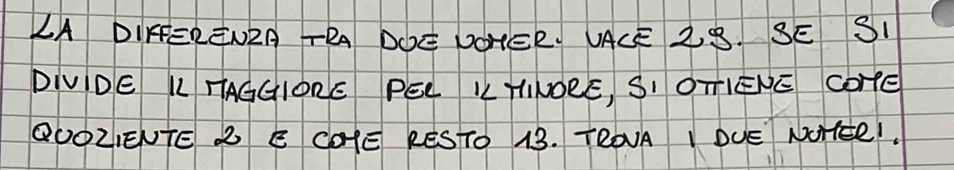 LA DIFFERENZA TRA DUE NUMERI VALE 28. SE SI
DIVIDE IL MAGGIORE PER IL MINORE, SI OTTIENE COME
QUOZIENTE 2 E COME RESTO 13. TROVA I DUE NUMERI.